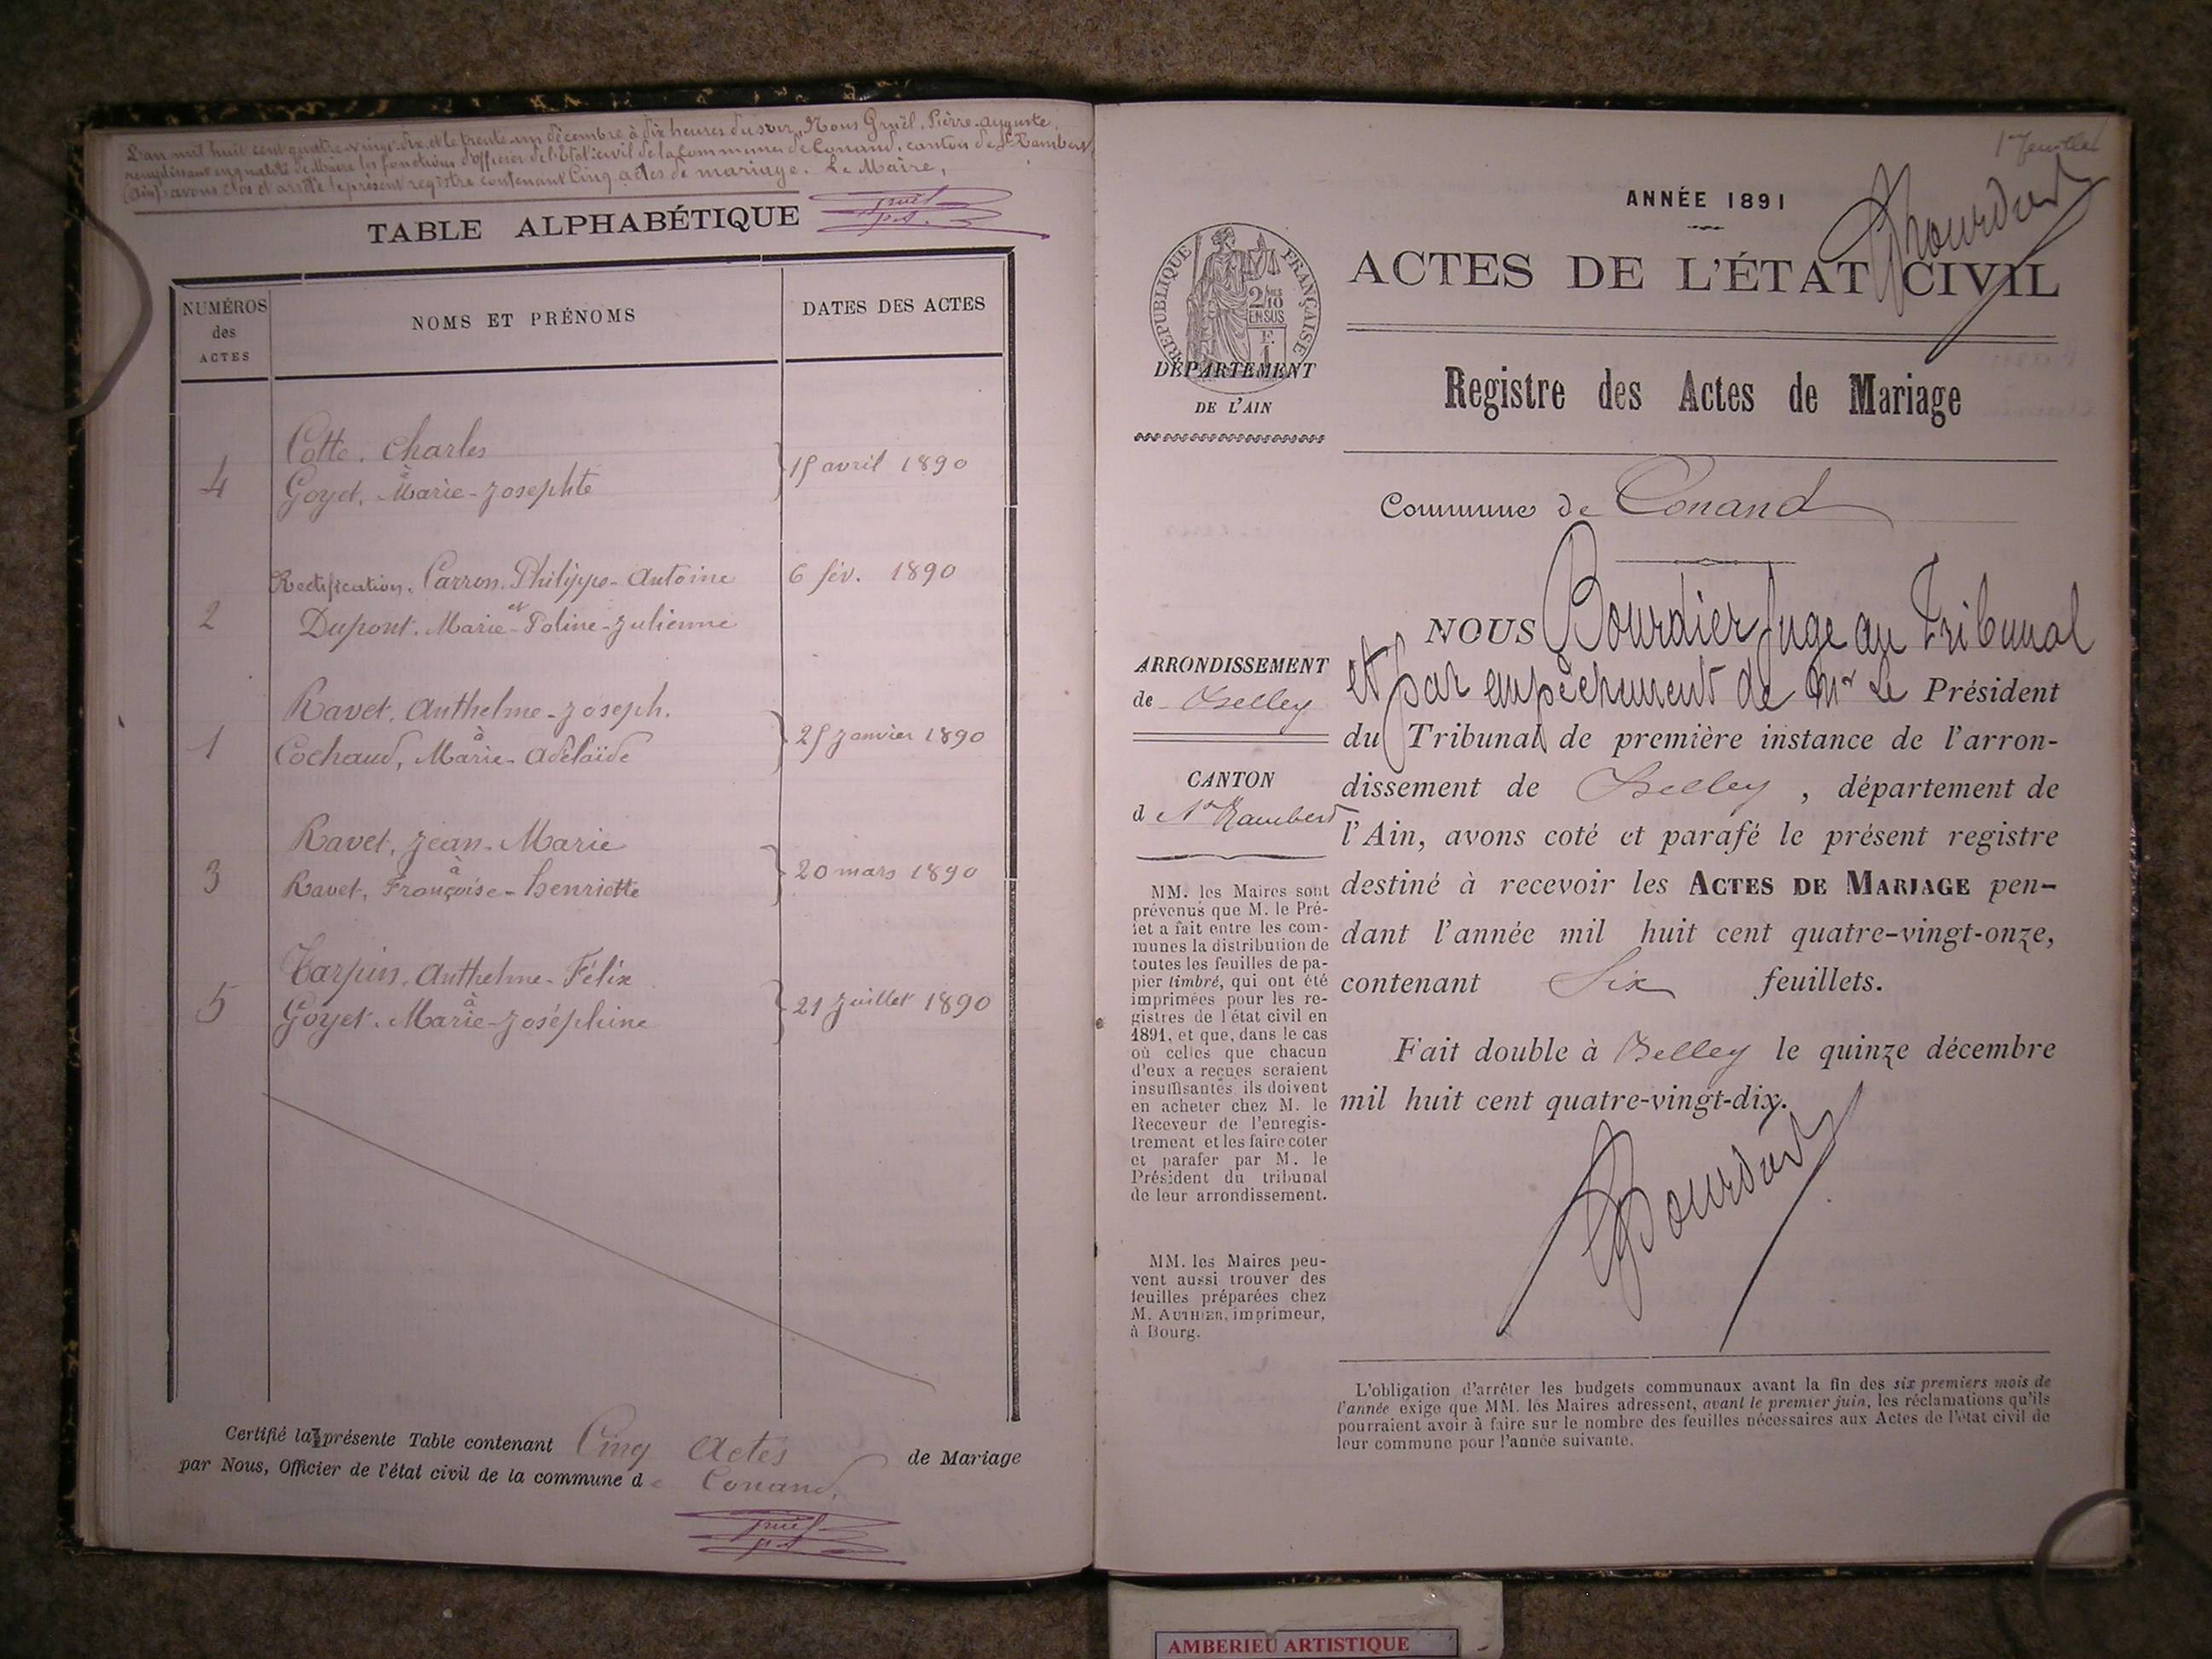 L'an mil huit cent quatre-vingt-dix, et le trente-un décembre à dix heures du soir, Nous Gruël, Pierre-Auguste,
remplissant en qualité de Maire les fonctions d'officier de l'Etat civil de la Commune de Conand, canton de St Rambert
(Ain) avons clos et arrêté le présent registre contenant Cinq actes de mariage. Le Maire,
TABLE ALPHABÉTIQUE
NUMÉROS
des
ACTES
NOMS ET PRÉNOMS
DATES DES ACTES
Cotte. Charles
à
4 Goyet, Marie-Josephte } 15 avril 1890
Rectification. Carron. Philippe-Antoine 6 fév. 1890
et
2 Dupont. Marie-Poline-Julienne
Ravet, Anthelme-Joseph.
à
1 Cochaud, Marie-Adélaïde } 25 Janvier 1890
Ravet, Jean-Marie
à
3 Ravet, Françoise-henriette } 20 mars 1890
Tarpin. Anthelme-Félix
à
5 Goyet. Marie-Joséphine } 21 Juillet 1890
Certifié la présente Table contenant Cinq Actes de Mariage
par Nous, Officier de l'état civil de la commune de Conand.
1er feuillet
ANNÉE 1891
ACTES DE L'ÉTAT CIVIL
RÉPUBLIQUE FRANÇAISE
2/10
EN SUS
DÉPARTEMENT
DE L'AIN
Registre des Actes de Mariage
Commune de Conand
ARRONDISSEMENT
de Belley
CANTON
d St Rambert
MM. les Maires sont
prévenus que M. le Pré-
fet a fait entre les com-
munes la distribution de
toutes les feuilles de pa-
pier timbré, qui ont été
imprimées pour les re-
gistres de l'état civil en
1891, et que, dans le cas
où celles que chacun
d'eux a reçues seraient
insuffisantes ils doivent
en acheter chez M. le
Receveur de l'enregis-
trement et les faire coter
et parafer par M. le
Président du tribunal
de leur arrondissement.
MM. les Maires peu-
vent aussi trouver des
feuilles préparées chez
M. AUTHIER, imprimeur,
à Bourg.
NOUS Bourdier Juge au Tribunal
et par empêchement de Mr Le Président
du Tribunal de première instance de l'arron-
dissement de Belley , département de
l'Ain, avons coté et parafé le présent registre
destiné à recevoir les ACTES DE MARIAGE pen-
dant l'année mil huit cent quatre-vingt-onze,
contenant Six feuillets.
Fait double à Belley le quinze décembre
mil huit cent quatre-vingt-dix.
L'obligation d'arrêter les budgets communaux avant la fin des six premiers mois de
l'année exige que MM. les Maires adressent, avant le premier juin, les réclamations qu'ils
pourraient avoir à faire sur le nombre des feuilles nécessaires aux Actes de l'état civil de
leur commune pour l'année suivante.
AMBERIEU ARTISTIQUE